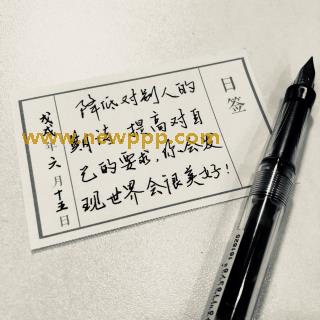 日签
降低对别人的
提高对自
己的要求,你会发
现世界会很美好!
戊戌年六月十五日
www.newppp.com